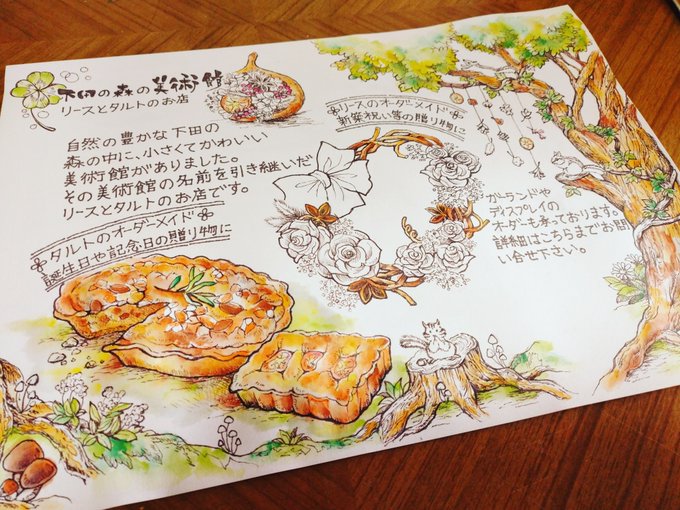 下田の森の美術館
リースとタルトのお店
自然の豊かな下田の
森の中に、小さくてかわいい
美術館がありました。
その美術館の名前を引き継いだ
リースとタルトのお店です。
タルトのオーダーメイド
誕生日や記念日の贈り物に
リースのオーダーメイド
新築祝い等の贈り物に
ガーランドや
ディスプレイの
オーダーも承っております。
詳細はこちらまでお問
い合せ下さい。